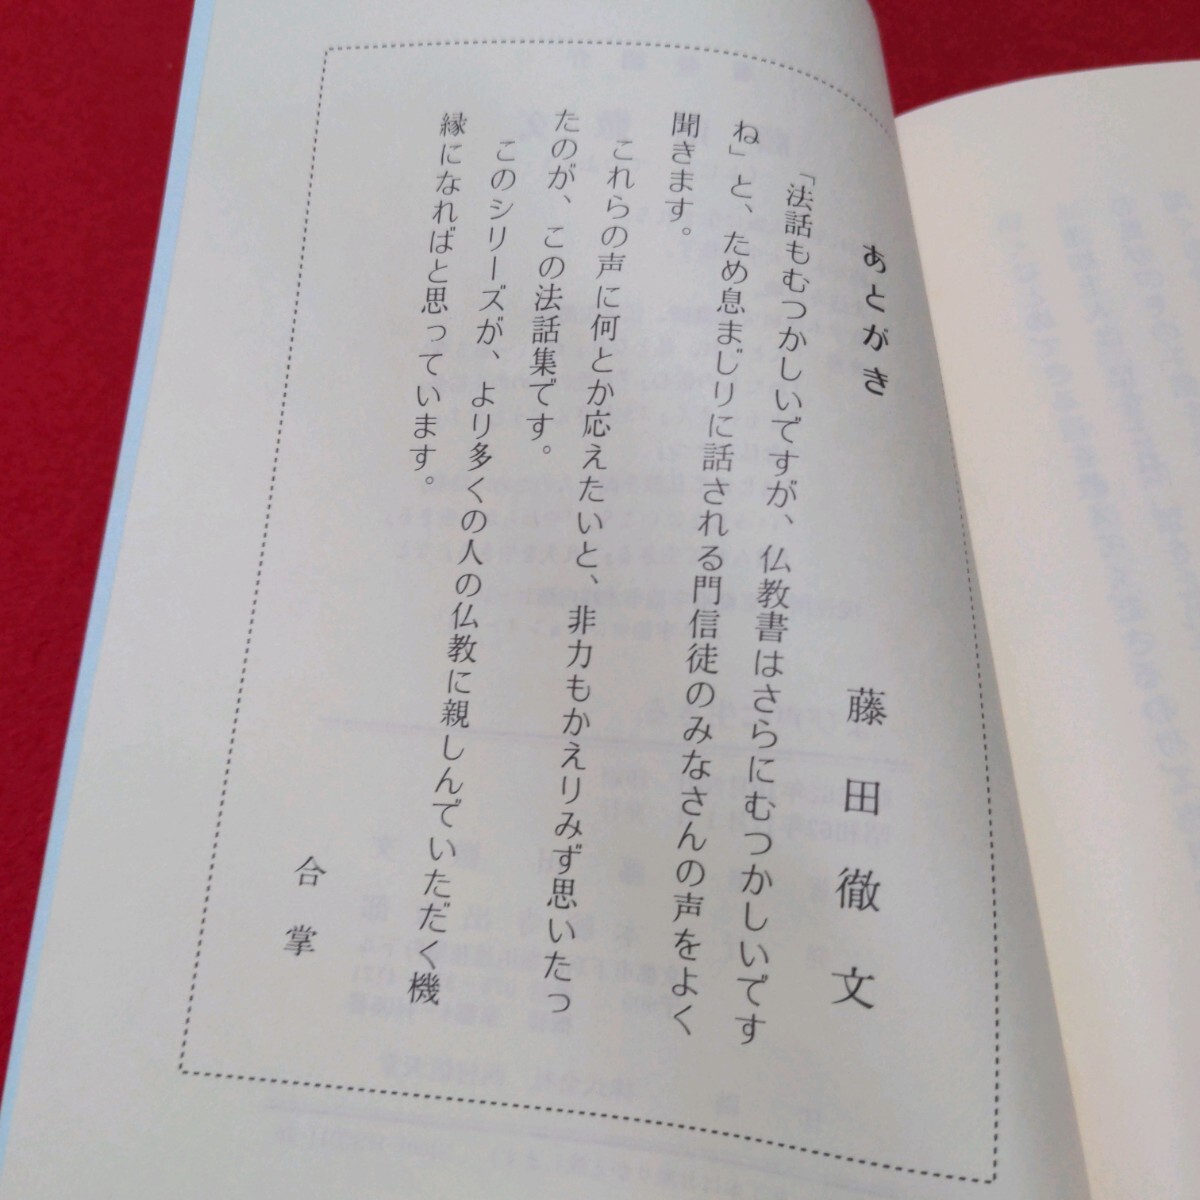 あとがき
藤田徹文
「法話もむつかしいですが、仏教書はさらにむつかしいです
ね」と、ため息まじりに話される門信徒のみなさんの声をよく
聞きます。
これらの声に何とか応えたいと、非力もかえりみず思いたっ
たのが、この法話集です。
このシリーズが、より多くの人の仏教に親しんでいただく機
縁になればと思っています。
合掌